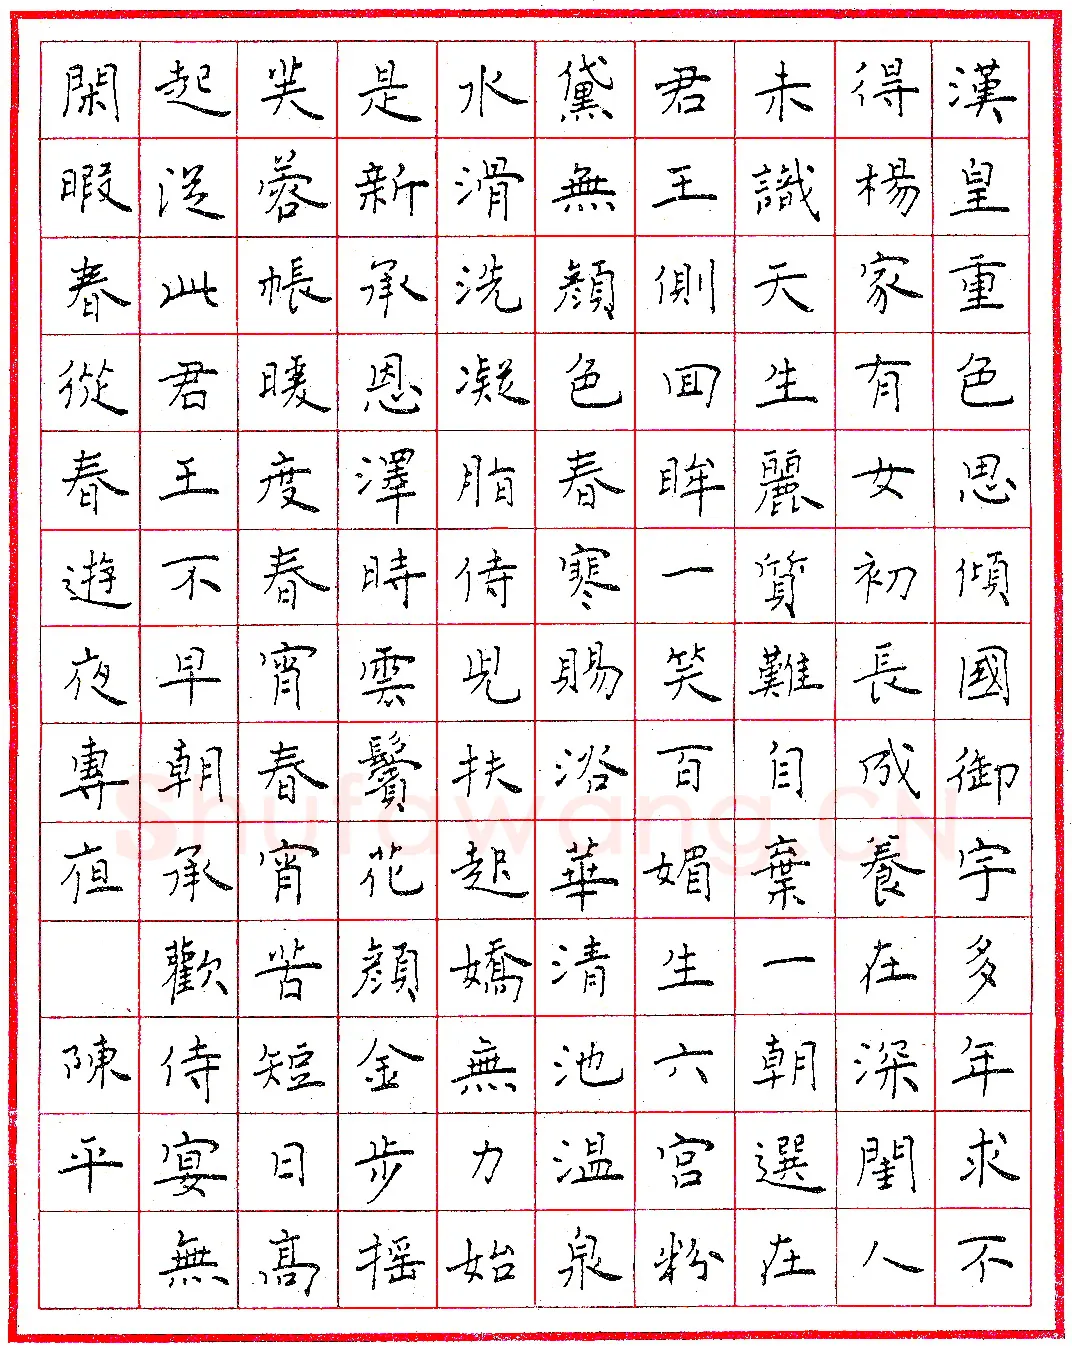 漢皇重色思傾國御宇多年求不
得楊家有女初長成養在深閨人
未識天生麗質難自棄一朝選在
君王側囬眸一笑百媚生六宮粉
黛無顔色春寒賜浴華清池温泉
水滑洗凝脂侍兒扶起嬌無力始
是新承恩澤時雲鬢花顔金步摇
芙蓉帳暖度春宵春宵苦短日髙
起從此君王不早朝承歡侍宴無
閑暇春從春遊夜專夜 陳平
Shufawang.CN